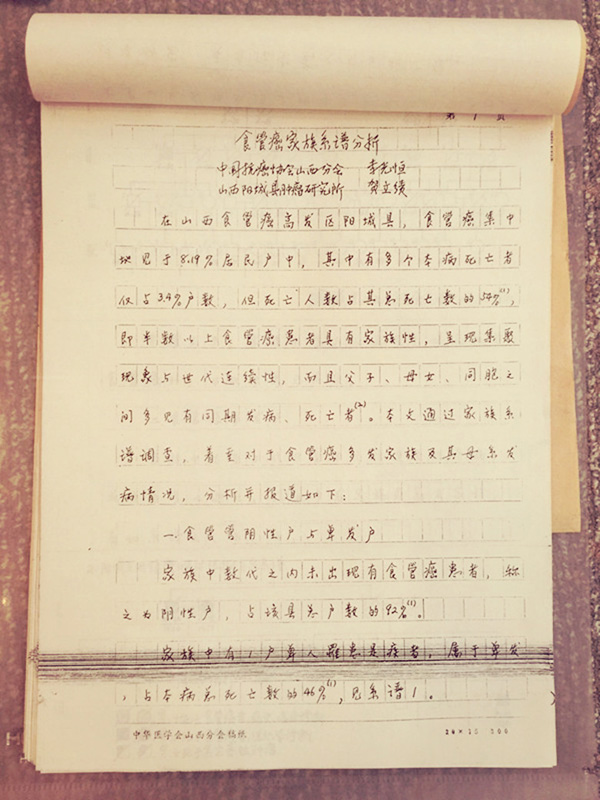 第 1 页
食管癌家族系谱分析
中国抗癌协会山西分会 李光恒
山西阳城县肿瘤研究所 贺立绩
在山西食管癌高发区阳城县，食管癌集中
地见于8.19%居民户中，其中有多个本病死亡者
仅占3.4%户数，但死亡人数占其总死亡数的54%(1)，
即半数以上食管癌患者具有家族性，呈现集聚
现象与世代连续性，而且父子、母女、同胞之
间多见有同期发病、死亡者(2)。本文通过家族系
谱调查，着重对于食管癌多发家族及其母系发
病情况，分析并报道如下：
一.食管管阴性户与单发户
家族中数代之内未出现有食管癌患者，称
之为阴性户，占该县总户数的92%(1)。
家族中有1户单人罹患是疾者，属于单发
，占本病总死亡数的46%(1)，见系谱1。
中华医学会山西分会稿纸
20×15 300